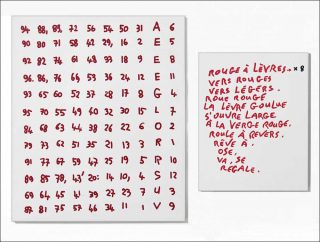 94 88, 89, 72 56 54 50 31 A 6
90 80 71 58 42 29, 16 2 E 5
92 82 74 61 48 33 18 8 E 8
96. 86, 76 69 53 36 24 12 E 11
93 65 60 52 37 28 15 9 G 4
95 70 55 49 40 32 20 10 L 7
84 64 44 38 26 22 6 O 2
91 73 68 47 35 21 13 3 I 1
97 77 67 59 47 25 5 R 10
89 85 78, 43' 20: 14, 10, 4 S 12
69 64 45 41 39 23 7 U 3
87 81 75 57 46 34 11 1 V 9
ROUGE À LÈVRES. × 8
VERS ROUGES
VERS LÉGERS.
ROUE ROUGE
LA LÈVRE GOULUE
S'OUVRE LARGE
À LA VERGE ROUGE.
ROULE À REVERS.
RÊVE À.
OSE,
VA, SE
RÉGALE.